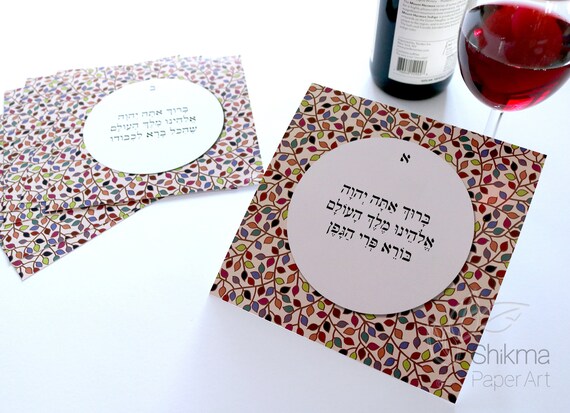 ב
בָּרוּךְ אַתָּה יְהוָה
אֱלֹהֵינוּ מֶלֶךְ הָעוֹלָם
שֶׁהַכֹּל בָּרָא לִכְבוֹדוֹ
א
בָּרוּךְ אַתָּה יְהוָה
אֱלֹהֵינוּ מֶלֶךְ הָעוֹלָם
בּוֹרֵא פְּרִי הַגָּפֶן
Shikma
Paper Art